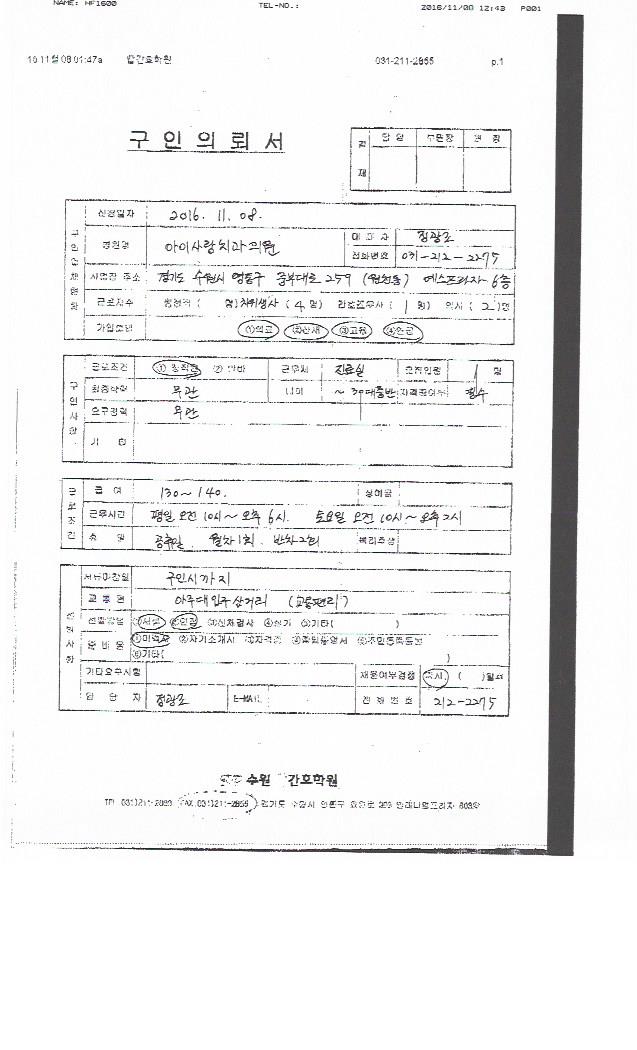 NAME: HF1600 TEL-NO.: 2016/11/08 12:43 P001
16 11월 08 01:47a 간호학원 031-211-2855 p.1
구 인 의 뢰 서
결 재 담 당 부원장 원 장
구인업체현황
신청일자 2016. 11. 08.
병원명 아이사랑치과의원 대 표 자 정광조
전화번호 031-212-2275
사업장 주소 경기도 수원시 영통구 중부대로 259 (원천동) 에스프라자 6층
근로자수 명) 치위생사 ( 4 명) 간호조무사 ( 1 명) 의사 ( 2 )명
가입보험 ①의료 ②산재 ③고용 ④연금
구인사항
근로조건 ① 정직원 ② 알바 근무처 진료실 모집인원 1 명
최종학력 무관 나이 ~ 30대중반 자격증여부 필수
요구경력 무관
기 타
근로조건
급 여 130~140. 상여금
근무시간 평일 오전 10시~오후 6시. 토요일 오전 10시~오후 2시
휴 일 공휴일. 월차1회. 반차2회 복리후생
전형사항
서류마감일 구인시까지
교 통 편 아주대입구삼거리 (교통편리)
전형방법 ①서류 ②면접 ③신체검사 ④실기 ⑤기타( )
준비물 ①이력서 ②자기소개서 ③자격증 ④졸업증명서 ⑤주민등록등본
⑥기타( )
기타요구사항 채용여부결정 즉시, ( )일후
담 당 자 정광조 E-MAIL 전 화 번 호 212-2275
수원 간호학원
TEL 031)211-2833 FAX 031)211-2855 경기도 수원시 영통구